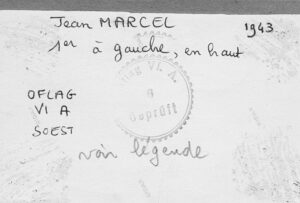 Jean MARCEL 1943
1er à gauche, en haut
Oflag VI. A.
6
Geprüft
OFLAG
VI A
SOEST
voir légende